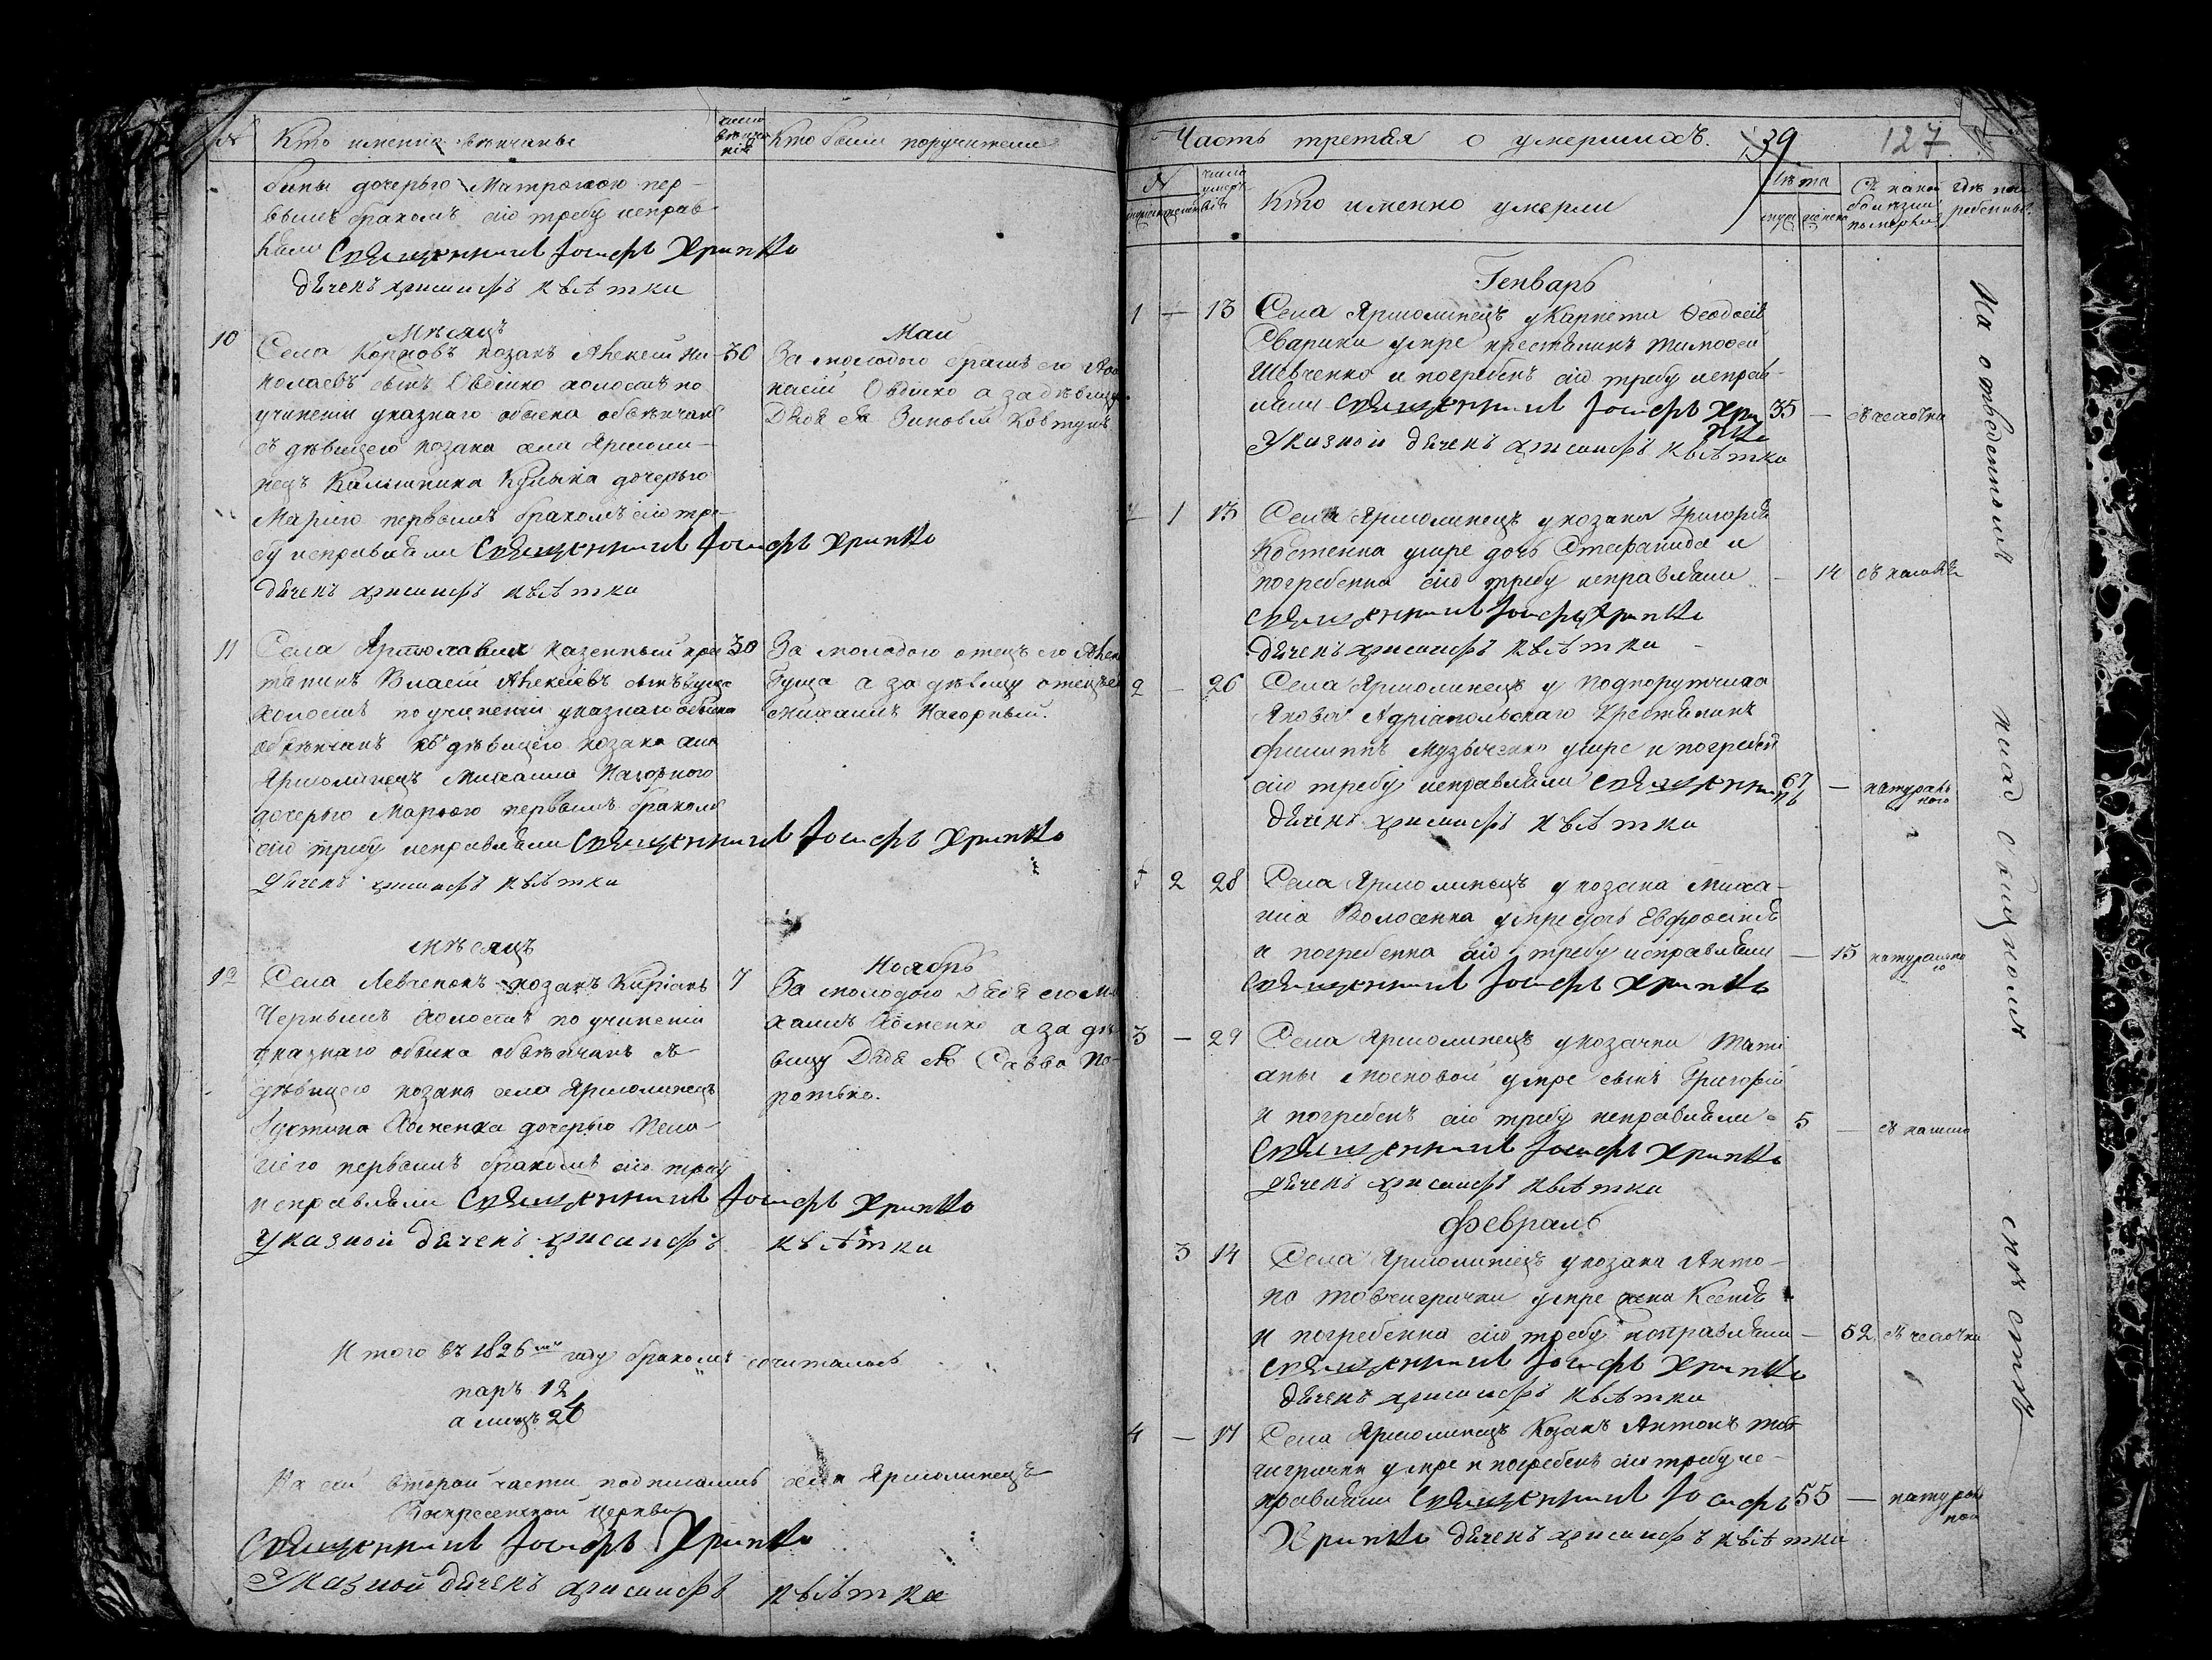 № Кто именно вѣнчаны
число вѣнчанія
Кто были поручители
бины дочерью Матроною пер-
вымъ бракомъ сію требу исправ-
ляли Священникъ Іосифъ Хрипко
дячекъ хрисанфъ квѣтка
Мѣсяцъ
Май
10 Села козакъ Алексѣй Ни- 30
колаевъ сынъ Овдіико холостъ по
учиненіи указнаго обыска обвѣнчанъ
съ дѣвицею козака села Ярмоли-
нецъ дочерью
Маріею первымъ бракомъ сію тре-
бу исправляли Священникъ Іосифъ Хрипко
дячекъ хрисанфъ квѣтка
За молодого братъ его
Овдіико а за дѣвицу
Дядя ея Зиновій Ковтунъ
11 Села казенный крес 30
тянинъ Власій Алексіевъ сынъ Буща
холостъ по учиненіи указнаго обыска
обвѣнчанъ съ дѣвицею козака села
Ярмолинецъ Михаила Нагорного
дочерью Марѳою первымъ бракомъ
сію требу исправляли Священникъ Іосифъ Хрипко
дячекъ хрисанфъ квѣтка
За молодого отецъ его
Буща а за дѣвицу отецъ ея
Михаилъ Нагорный.
Мѣсяцъ
Ноябрь
12 Села Левченокъ козакъ Кирíанъ 7
Чернышъ холостъ по учиненіи
указнаго обыска обвѣнчанъ съ
дѣвицею козака села Ярмолинецъ
дочерью Пела-
гіею первымъ бракомъ сію требу
исправляли Священникъ Іосифъ Хрипко
Указной дячекъ хрисанфъ квѣтка
За молодого Дядя его Ми
хаилъ а за дѣ
вицу Дядя ея Савва По-
ротько.
Итого въ 1826мъ году бракомъ сочиталось
паръ 12
а лицъ 24
На сей второй части подписались села Ярмолинецъ
Воскресенской церкви
Священникъ Іосифъ Хрипко
Указной дячекъ хрисанфъ квѣтка
Часть третья о умершихъ. 39 127
№
число умертвія
Кто именно умерли
лѣта
мужес женска
Съ какой болѣзни померли
гдѣ погребены
Генварь
1 — 13 Села Ярмолинецъ у Карпета Ѳеодосіе
Сварики умре крестянинъ Тимоѳей
Шевченко и погребенъ сію требу исправ-
ляли Священникъ Іосифъ Хри 35 —
пко
Указной дячекъ хрисанфъ квѣтка
1 13 Села Ярмолинецъ у козака Григорія
Костенка умре дочь Стефанида и
погребенна сію требу исправляли — 14 съ кашлѣ
Священникъ Іосифъ Хрипко
дячекъ хрисанфъ квѣтка
2 — 26 Села Ярмолинецъ у Подпорутчика
Якова Адріапольскаго Крестянинъ
Филиппъ Музыченко умре и погребен
сію требу исправляли Священникъ 67 — натурально
го
дячекъ хрисанфъ квѣтка
2 28 Села Ярмолинецъ у козака Миха-
ила Волосенка умре дочь Евфросинія
и погребенна сію требу исправляли — 15 натурально
го
Священникъ Іосифъ Хрипко
3 — 29 Села Ярмолинецъ у козачки Тати
аны Мосновой умре сынъ Григорій
и погребенъ сію требу исправляли 5 — съ кашлю
Священникъ Іосифъ Хрипко
дячекъ хрисанфъ квѣтка
Февраль
3 14 Села Ярмолинецъ у козака Анто-
на Товчигрички умре жена Ксенія
и погребенна сію требу исправляли — 52
Священникъ Іосифъ Хрипко
дячекъ хрисанфъ квѣтка
4 — 17 Села Ярмолинецъ Козакъ Антонъ Тов
чигричка умре и погребенъ сію требу ис-
правляли Священникъ Іосифъ 55 — натураль
ной
Хрипко дячекъ хрисанфъ квѣтка
На отведенномъ